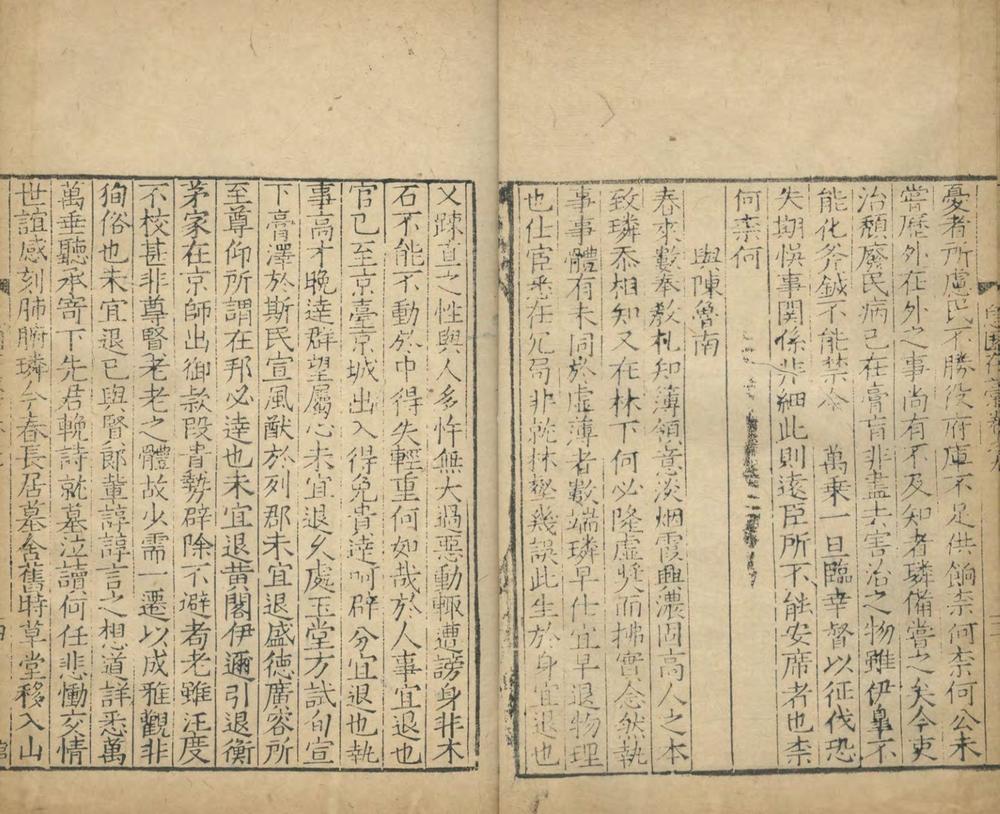 憂者所慮民不勝役府庫不足供餉柰何柰何公未
嘗歷外在外之事尚有不及知者璘備嘗之矣今吏
治頹廢民病已在膏肓非盡去害治之物雖伊臯不
能化斧鉞不能禁令　萬乗一旦臨幸督以征伐恐
失期悞事関係非細此則遠臣所不能安席者也柰
何柰何
與陳魯南
春來數奉教札知簿領意淡烟霞興濃固高人之本
致璘忝相知又在林下何必隆虛奬而拂實念然執
事事體有未同於虛薄者數端璘早仕宜早退物理
也仕宦悉在冗局非乾抹摋幾誤此生於身宜退也
又疎直之性與人多忤無大過惡動輒遭謗身非木
石不能不動於中得失輕重何如哉於人事宜退也
官已至京臺京城出入得免貴逹呵辟分宜退也執
事高才晚逹群望屬心未宜退久處玉堂方試旬宣
下膏澤於斯民宣風猷於列郡未宜退盛徳廣容所
至尊仰所謂在邦必逹也未宜退黃閣伊邇引退衡
茅家在京師出御欵段貴勢辟除不避者老雖汪度
不校甚非尊賢老老之體故少需一遷以成雅觀非
狥俗也未宜退已與賢郎輩諄諄言之想道詳悉萬
萬垂聽承寄下先君輓詩就墓泣讀何任悲慟交情
世誼感刻肺腑璘今春長居墓舍舊時草堂移入山